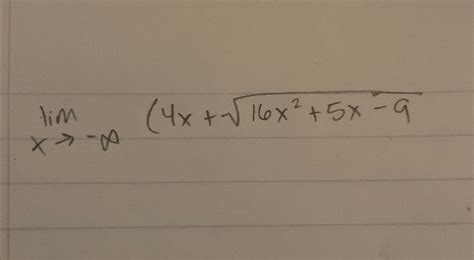 lim x → -∞ (4x + √16x² + 5x - 9